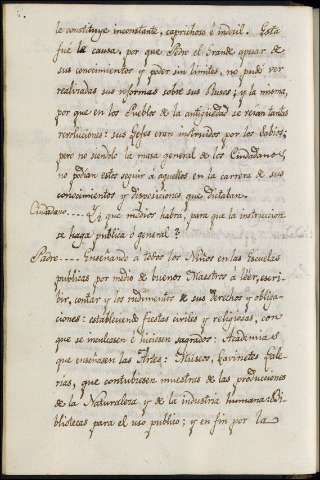 le constituye inconstante, caprichoso é indocil. Esta
fué la causa, por que Pedro el Grande apesar de
sus conocimientos y poder sin limites, no pudo ver
realizadas sus reformas sobre sus Rusos; y la misma,
por que en los Pueblos de la antiguedad se veian tantas
revoluciones: sus Gefes eran instruidos por los Sabios;
pero no siendolo la masa general de los Ciudadanos,
no podian estos seguir a aquellos en la carrera de sus
conocimientos y disposiciones que dictaban.
Ciudadano.... Y que medios habrá, para que la instruccion
se haga publica ó general?
Padre.... Enseñando a todos los Niños en las Escuelas
publicas por medio de buenos Maestros a leer, escri-
bir, contar y los rudimentos de sus derechos y obliga-
ciones: estableciendo fiestas civiles y religiosas, con
que se inculcasen é hiciesen sagrados: Academias
que enseñasen las Artes: Museos, Gavinetes, Gale-
rias, que contubiesen muestras de las producciones
de la Naturaleza y de la industria humana: Bi-
bliotecas para el uso publico; y en fin por la